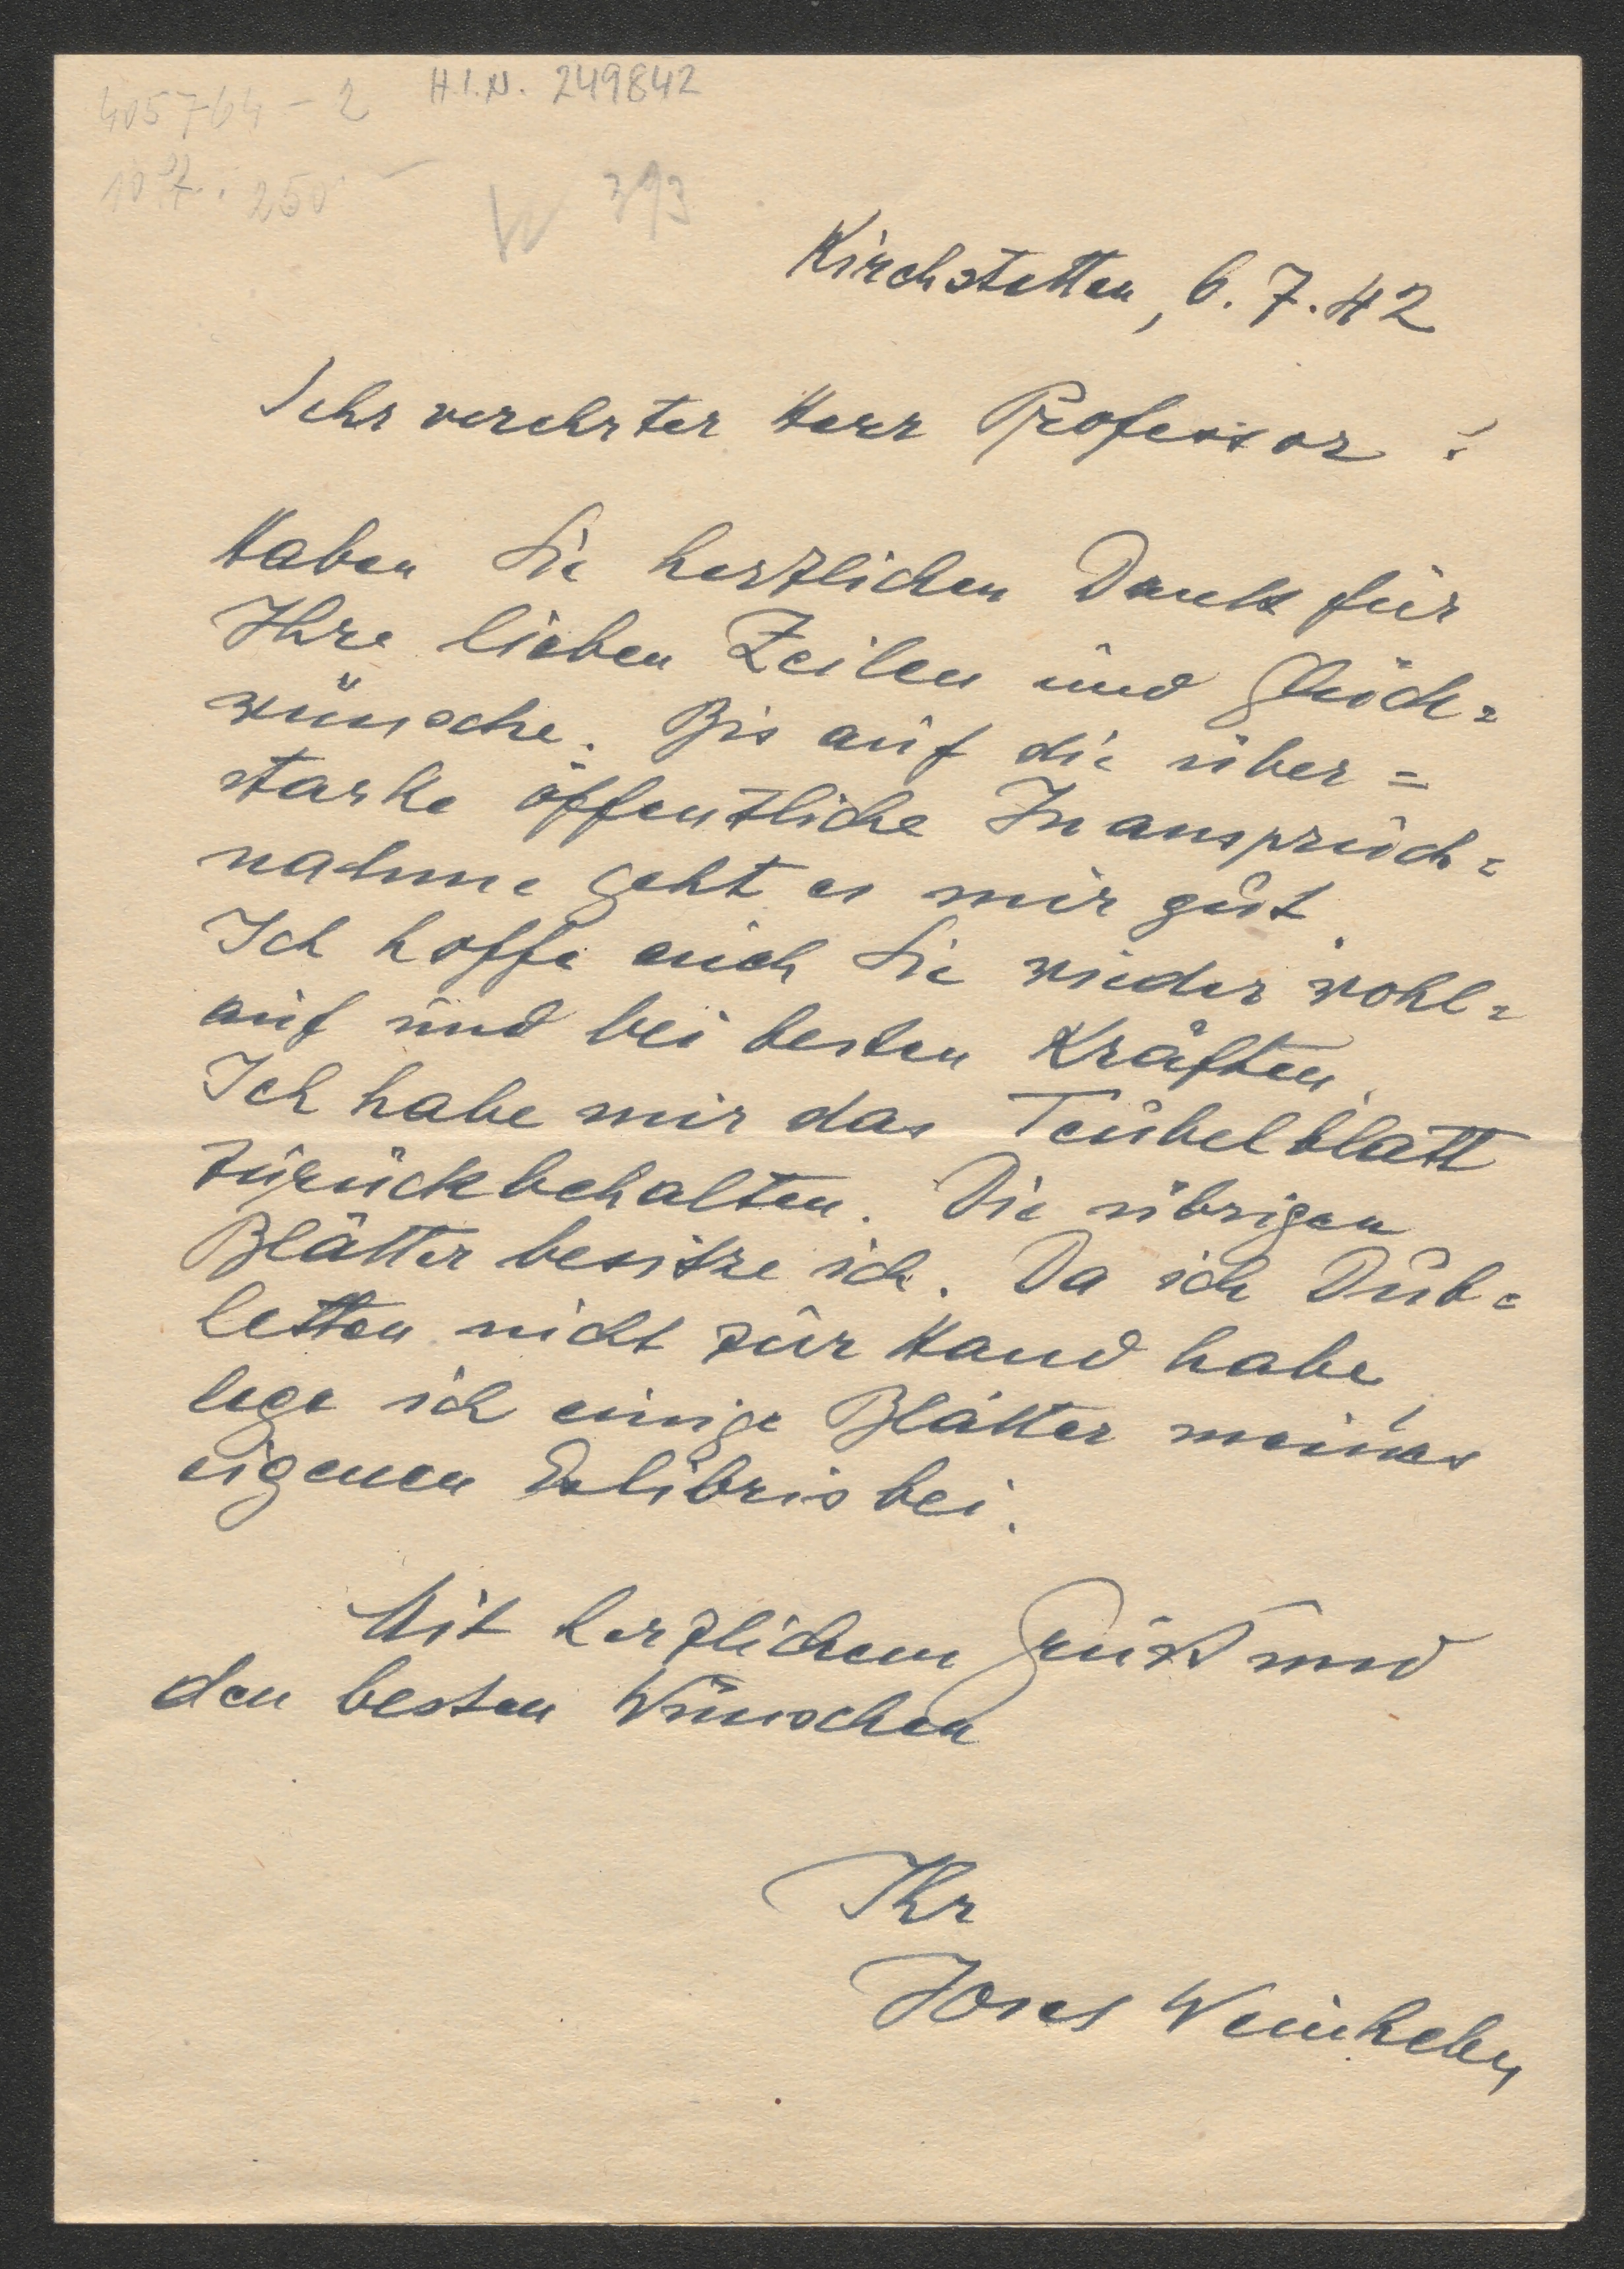 405764-2 H.I.N. 249842
W 393
Kirchstetten, 6.7.42
Sehr verehrter Herr Professor!
Haben Sie herzlichen Dank für
Ihre lieben Zeilen und Glück=
wünsche. Bis auf die über=
starke öffentliche Inanspruch=
nahme geht es mir gut.
Ich hoffe auch Sie wieder wohl=
auf und bei besten Kräften.
Ich habe mir das Teubelblatt
zurückbehalten. Die übrigen
Blätter besitze ich. Da ich Dub=
letten nicht zur Hand habe,
lege ich einige Blätter meines
eigenen Exlibris bei.
Mit herzlichem Gruß und
den besten Wünschen
Ihr
Josef Weinheber